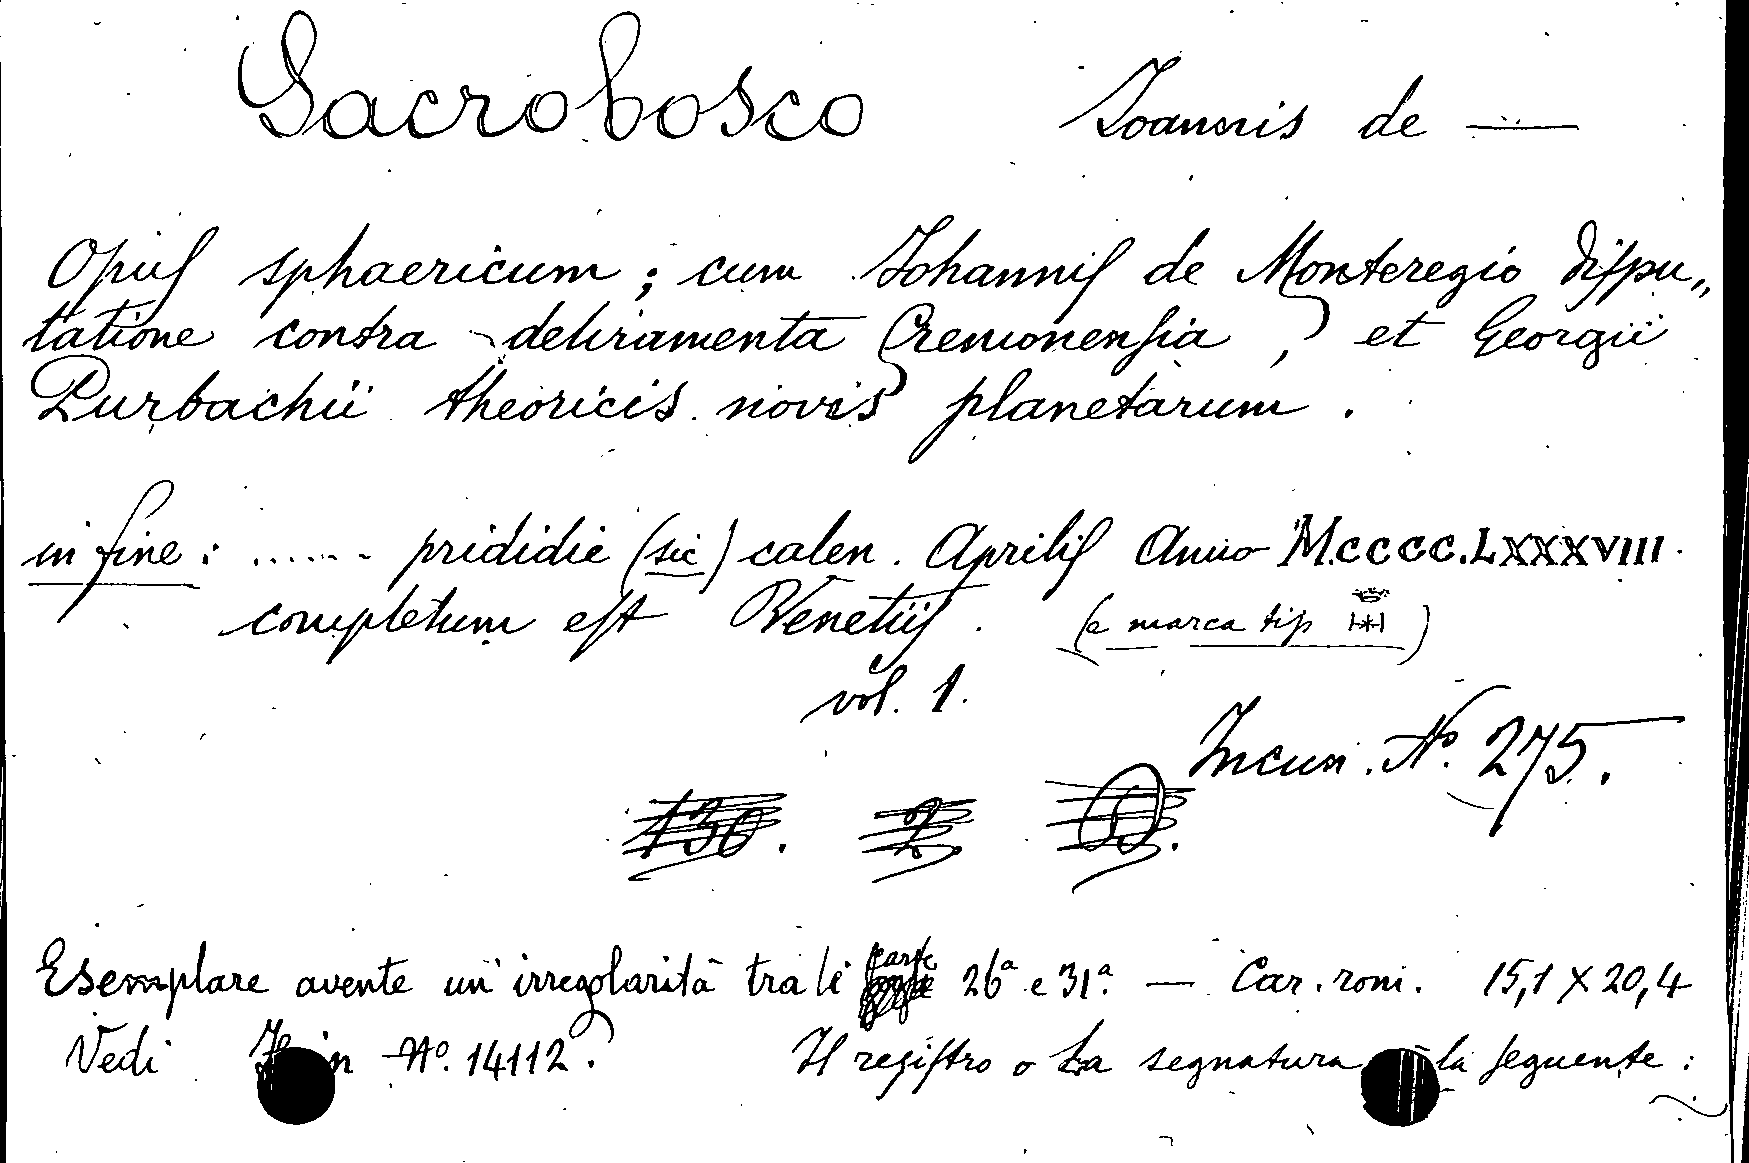 Sacrobosco Ioannis de —
Opuſ sphaericum ; cum Iohanniſ de Monteregio diſpu„
tatione contra deliramenta Cremonenſia , et Georgii
Purbachii theoricis novis planetarum .
in fine : ...... prididie (sic) calen. Apriliſ Anno M.CCCC.LXXXVIII.
completum eſt Venetiiſ . (e marca tip )
vol. 1.
Incun. Nº. 275.
130. 2 D.
Esemplare avente un' irregolarità tra le carte 26ª e 31ª. — Car. rom. 15,1 X 20,4
Vedi Nº. 14112. Il regiſtro o la segnatura la ſeguente :